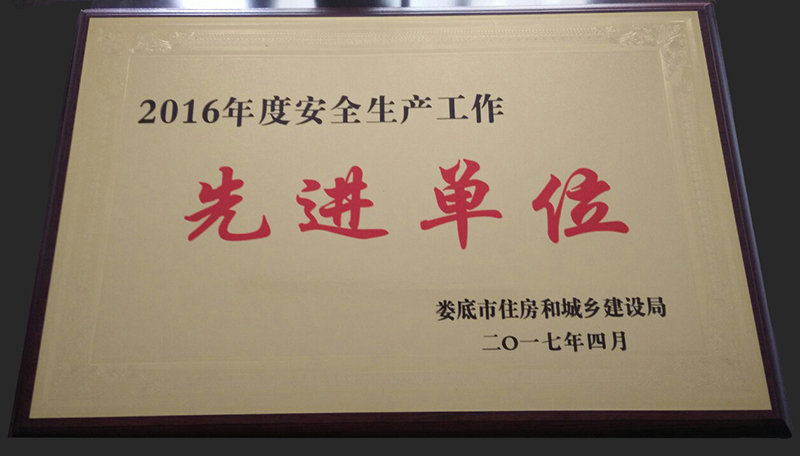 2016年度安全生产工作
先进单位
娄底市住房和城乡建设局
二O一七年四月